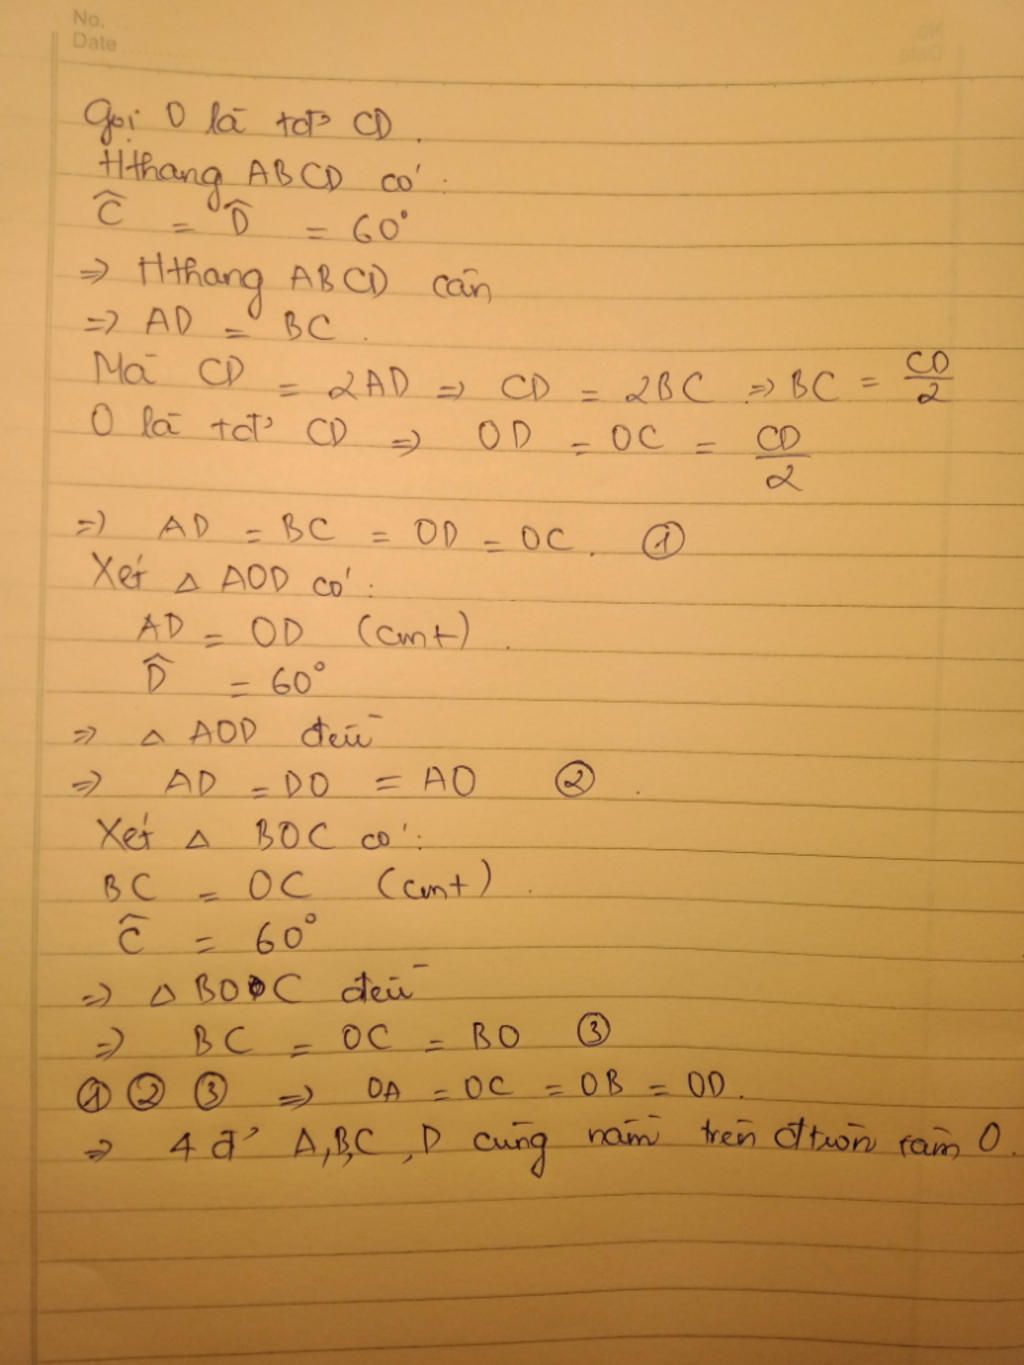 No.
Date
Gọi O là tđ' CD.
Hthang ABCD có:
Ĉ = D̂ = 60°
=> Hthang ABCD cân
=> AD = BC.
Mà CD = 2AD => CD = 2BC => BC = CD/2
O là tđ' CD => OD = OC = CD/2
=> AD = BC = OD = OC. ①
Xét △ AOD có:
AD = OD (cmt).
D̂ = 60°
=> △ AOD đều
=> AD = DO = AO ②.
Xét △ BOC có:
BC = OC (cmt).
Ĉ = 60°
=> △ BOC đều
=> BC = OC = BO ③
① ② ③ => OA = OC = OB = OD.
=> 4 đ' A,B,C,D cùng nằm trên đtròn tâm O.